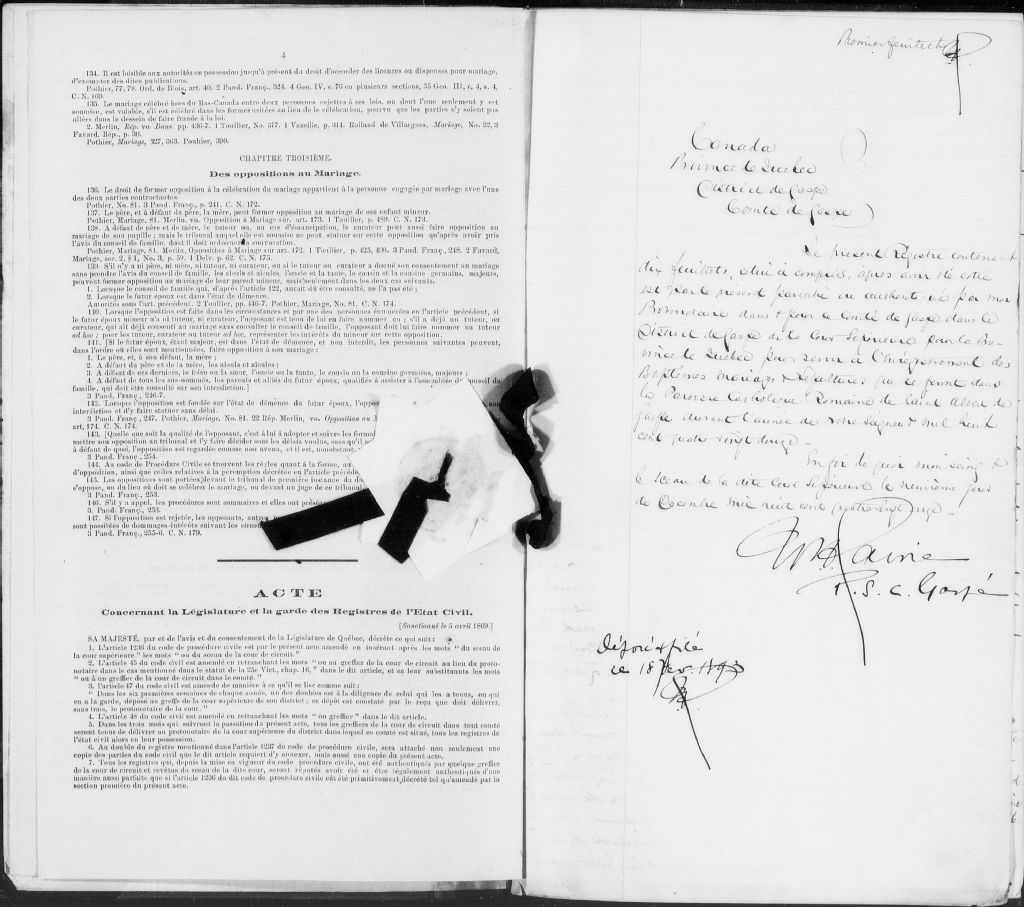 4
134. Il est loisible aux autorités en possession jusqu'à présent du droit d'accorder des licences ou dispenses pour mariage,
d'exempter des dites publications.
Pothier, 77, 78. Ord. de Blois, art. 40. 2 Pand. Franç., 324. 4 Geo. IV, c. 76 en plusieurs sections, 35 Geo. III, c, 4, s. 4,
C. N. 169.
135. Le mariage célébré hors du Bas-Canada entre deux personnes sujettes à ses lois, ou dont l'une seulement y est
soumise, est valable, s'il est célébré dans les formes usitées au lieu de la célébration, pourvu que les parties n'y soient pas
allées dans le dessein de faire fraude à la loi.
2. Merlin, Rép. vo. Bans. pp. 436-7. 1 Toullier, No. 577. 1 Vazeille, p. 314. Rolland de Villargues, Mariage, No. 22, 3
Favard. Rép., p. 30.
Pothier, Mariage, 327, 363. Pouhier, 390.
CHAPITRE TROISIÈME.
Des oppositions au Mariage.
136. Le droit de former opposition à la célébration du mariage appartient à la personne engagée par mariage avec l'une
des deux parties contractantes.
Pothier, No. 81. 3 Pand. Franç., p. 241. C. N. 172.
137. Le père, et à défaut du père, la mère, peut former opposition au mariage de son enfant mineur.
Pothier, Mariage, 81. Merlin. vo. Opposition à Mariage sur. art. 173. 1 Toullier, p. 489. C. N. 173.
138. A défaut de père et de mère, le tuteur ou, au cas d'émancipation, le curateur peut aussi faire opposition au
mariage de son pupille ; mais le tribunal auquel elle est soumise ne peut statuer sur cette opposition qu'après avoir pris
l'avis du conseil de famille, dont il doit ordonner la convocation.
Pothier, Mariage, 81. Merlin, Opposition à Mariage sur art. 172. 1 Toullier, p. 425, 490. 3 Pand. Franç., 248. 2 Favard,
Mariage, sec. 2, § 1, No. 3, p. 59. 1 Delv. p. 62. C. N. 175.
139. S'il n'y a ni père, ni mère, ni tuteur, ni curateur, ou si le tuteur ou curateur a donné son consentement au mariage
sans prendre l'avis du conseil de famille, les aïeuls et aïeules, l'oncle et la tante, le cousin et la cousine germains, majeurs,
peuvent former opposition au mariage de leur parent mineur, mais seulement dans les deux cas suivants.
1. Lorsque le conseil de famille qui, d'après l'article 122, aurait dû être consulté, ne l'a pas été ;
2. Lorsque le futur époux est dans l'état de démence.
Autorités sous l'art. précédent. 2 Toullier, pp. 446-7. Pothier, Mariage, No. 81. C. N. 174.
140. Lorsque l'opposition est faite dans les circonstances et par une des personnes énumérées en l'article précédent, si
le futur époux mineur n'a ni tuteur, ni curateur, l'opposant est tenu de lui en faire nommer un ; s'il a déjà un tuteur, ou
curateur, qui ait déjà consenti au mariage sans consulter le conseil de famille, l'opposant doit lui faire nommer un tuteur
ad hoc ; pour les tuteur, curateur ou tuteur ad hoc, représenter les intérêts du mineur sur cette opposition.
141. [Si le futur époux, étant majeur, est dans l'état de démence, et non interdit, les personnes suivantes peuvent,
dans l'ordre où elles sont mentionnées, faire opposition à son mariage :
1. Le père, et, à son défaut, la mère ;
2. A défaut du père et de la mère, les aïeuls et aïeules ;
3. A défaut de ces derniers, le frère ou la sœur, l'oncle ou la tante, le cousin ou la cousine germains, majeurs ;
4. A défaut de tous les sus-nommés, les parents et alliés du futur époux, qualifiés à assister à l'assemblée de conseil de
famille, qui doit être consulté sur son interdiction.]
3 Pand. Franç., 246-7.
142. Lorsque l'opposition est fondée sur l'état de démence du futur époux, l'oppos
interdiction et d'y faire statuer sans délai.
3 Pand. Franç., 247. Pothier, Mariage. No. 81. 22 Rép. Merlin, vo. Opposition au
art, 174. C. N. 174.
143. [Quelle que soit la qualité de l'opposant, c'est à lui à adopter et suivre les formal
mettre son opposition au tribunal et l'y faire décider sous les délais voulus, sans qu'il s
à défaut de quoi, l'opposition est regardée comme non avenu, et il est, nonobstant,
3 Pand. Franç., 254.
144. Au code de Procédure Civile se trouvent les règles quant à la forme, au
d'opposition, ainsi que celles relatives à la péremption décrétée en l'article précéde
145. Les oppositions sont portées devant le tribunal de première instance du d
s'oppose, ou du lieu où doit se célébrer le mariage, ou devant un juge de ce tribunal
3 Pand. Franç., 253.
146. S'il y a appel, les procédures sont sommaires et elles ont prés
3. Pand. Franç., 253.
147. Si l'opposition est rejetée, les opposants, autres
sont passibles de dommages-intérêts suivant les circon
3 Pand. Franç., 255-6. C. N. 179.
ACTE
Concernant la Législature et la garde des Registres de l'Etat Civil.
[Sanctionné le 5 avril 1869.]
SA MAJESTÉ, par et de l'avis et du consentement de la Législature de Québec, décrète ce qui suit :
1. L'article 1236 du code de procédure civile est par le présent acte amendé en insérant après les mots " du sceau de
la cour supérieure " les mots " ou du sceau de la cour de circuit."
2. L'article 45 du code civil est amendé en retranchant les mots " ou au greffier de la cour de circuit au lieu du proto-
notaire dans le cas mentionné dans le statut de la 25e Vict., chap. 16, " dans le dit article, et en leur substituant les mots
" ou à un greffier de la cour de circuit dans le comté."
3. l'article 47 du code civil est amendé de manière à ce qu'il se lise comme suit :
" Dans les six premières semaines de chaque année, un des doubles est à la diligence de celui qui les a tenus, ou qui
en a la garde, déposé au greffe de la cour supérieure de son district ; ce dépôt est constaté par le reçu que doit délivrer,
sans frais, le protonotaire de la cour. "
4. L'article 48 du code civil est amendé en retranchant les mots " ou greffier " dans le dit article.
5. Dans les trois mois qui suivront la passation du présent acte, tous les greffiers de la cour de circuit dans tout comté
seront tenus de délivrer au protonotaire de la cour supérieure du district dans lequel ce comté est situé, tous les registres de
l'état civil alors en leur possession.
6. Au double du registre mentionné dans l'article 1237 du code de procédure civile, sera attaché non seulement une
copie des parties du code civil que le dit article requiert d'y annexer, mais aussi une copie du présent acte.
7. Tous les registres qui, depuis la mise en vigueur du code procédure civile, ont été authentiqués par quelque greffier
de la cour de circuit et revêtus du sceau de la dite cour, seront réputés avoir été et être légalement authentiqués d'une
manière aussi parfaite que si l'article 1236 du dit code de procédure civile eût été primitivement décrété tel qu'amendé par la
section première du présent acte.
Premier feuillet
Canada
Province de Québec
District de Gaspé
Comté de Gaspé
Le présent Régistre contenant
dix feuillets, celui ci compris, après avoir été coté
est par le présent paraphé et authentiqué par moi
Protonotaire dans & pour le Comté de Gaspé dans le
District de Gaspé de la Cour Supérieure pour la Pro-
vince de Québec pour servir à l'Enregistrement des
Baptêmes Mariages & Sépultures qui se feront dans
la Paroisse Catholique Romaine de Saint Albert de
Gaspé durant l'année de Notre Seigneur mil huit
cent quatre vingt douze -
En foi de quoi mon seing &
le sceau de la dite Cour Supérieure le neuvième jour
de Décembre mil huit cent quatre vingt onze -
P. S. C. Gaspé
Déposé & filé
ce 18 fev. 1893